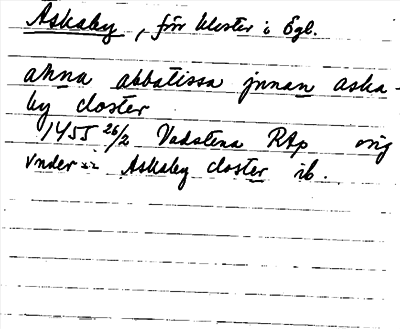 Askaby, förr kloster i Ögl.
anna abbatissa jnnan aska-
by closter
1455 26/2 Vadstena RAp orig
vnder Askaby closter ib.